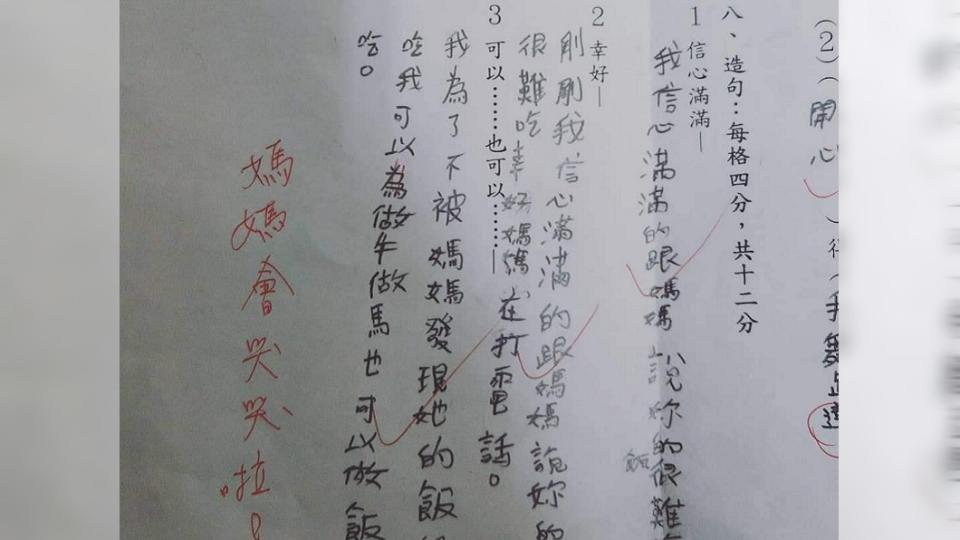 (2)(開心)得(手舞足達
八、造句:每格四分,共十二分
1 信心滿滿—
我信心滿滿的跟媽媽說妳的飯很難
2 幸好—
剛剛我信心滿滿的跟媽媽說妳的
很難吃幸好媽媽在打電話。
3 可以……也可以……—
我為了不被媽媽發現她的飯
吃我可以為做牛做馬也可以做飯
吃。
媽媽會哭哭啦!